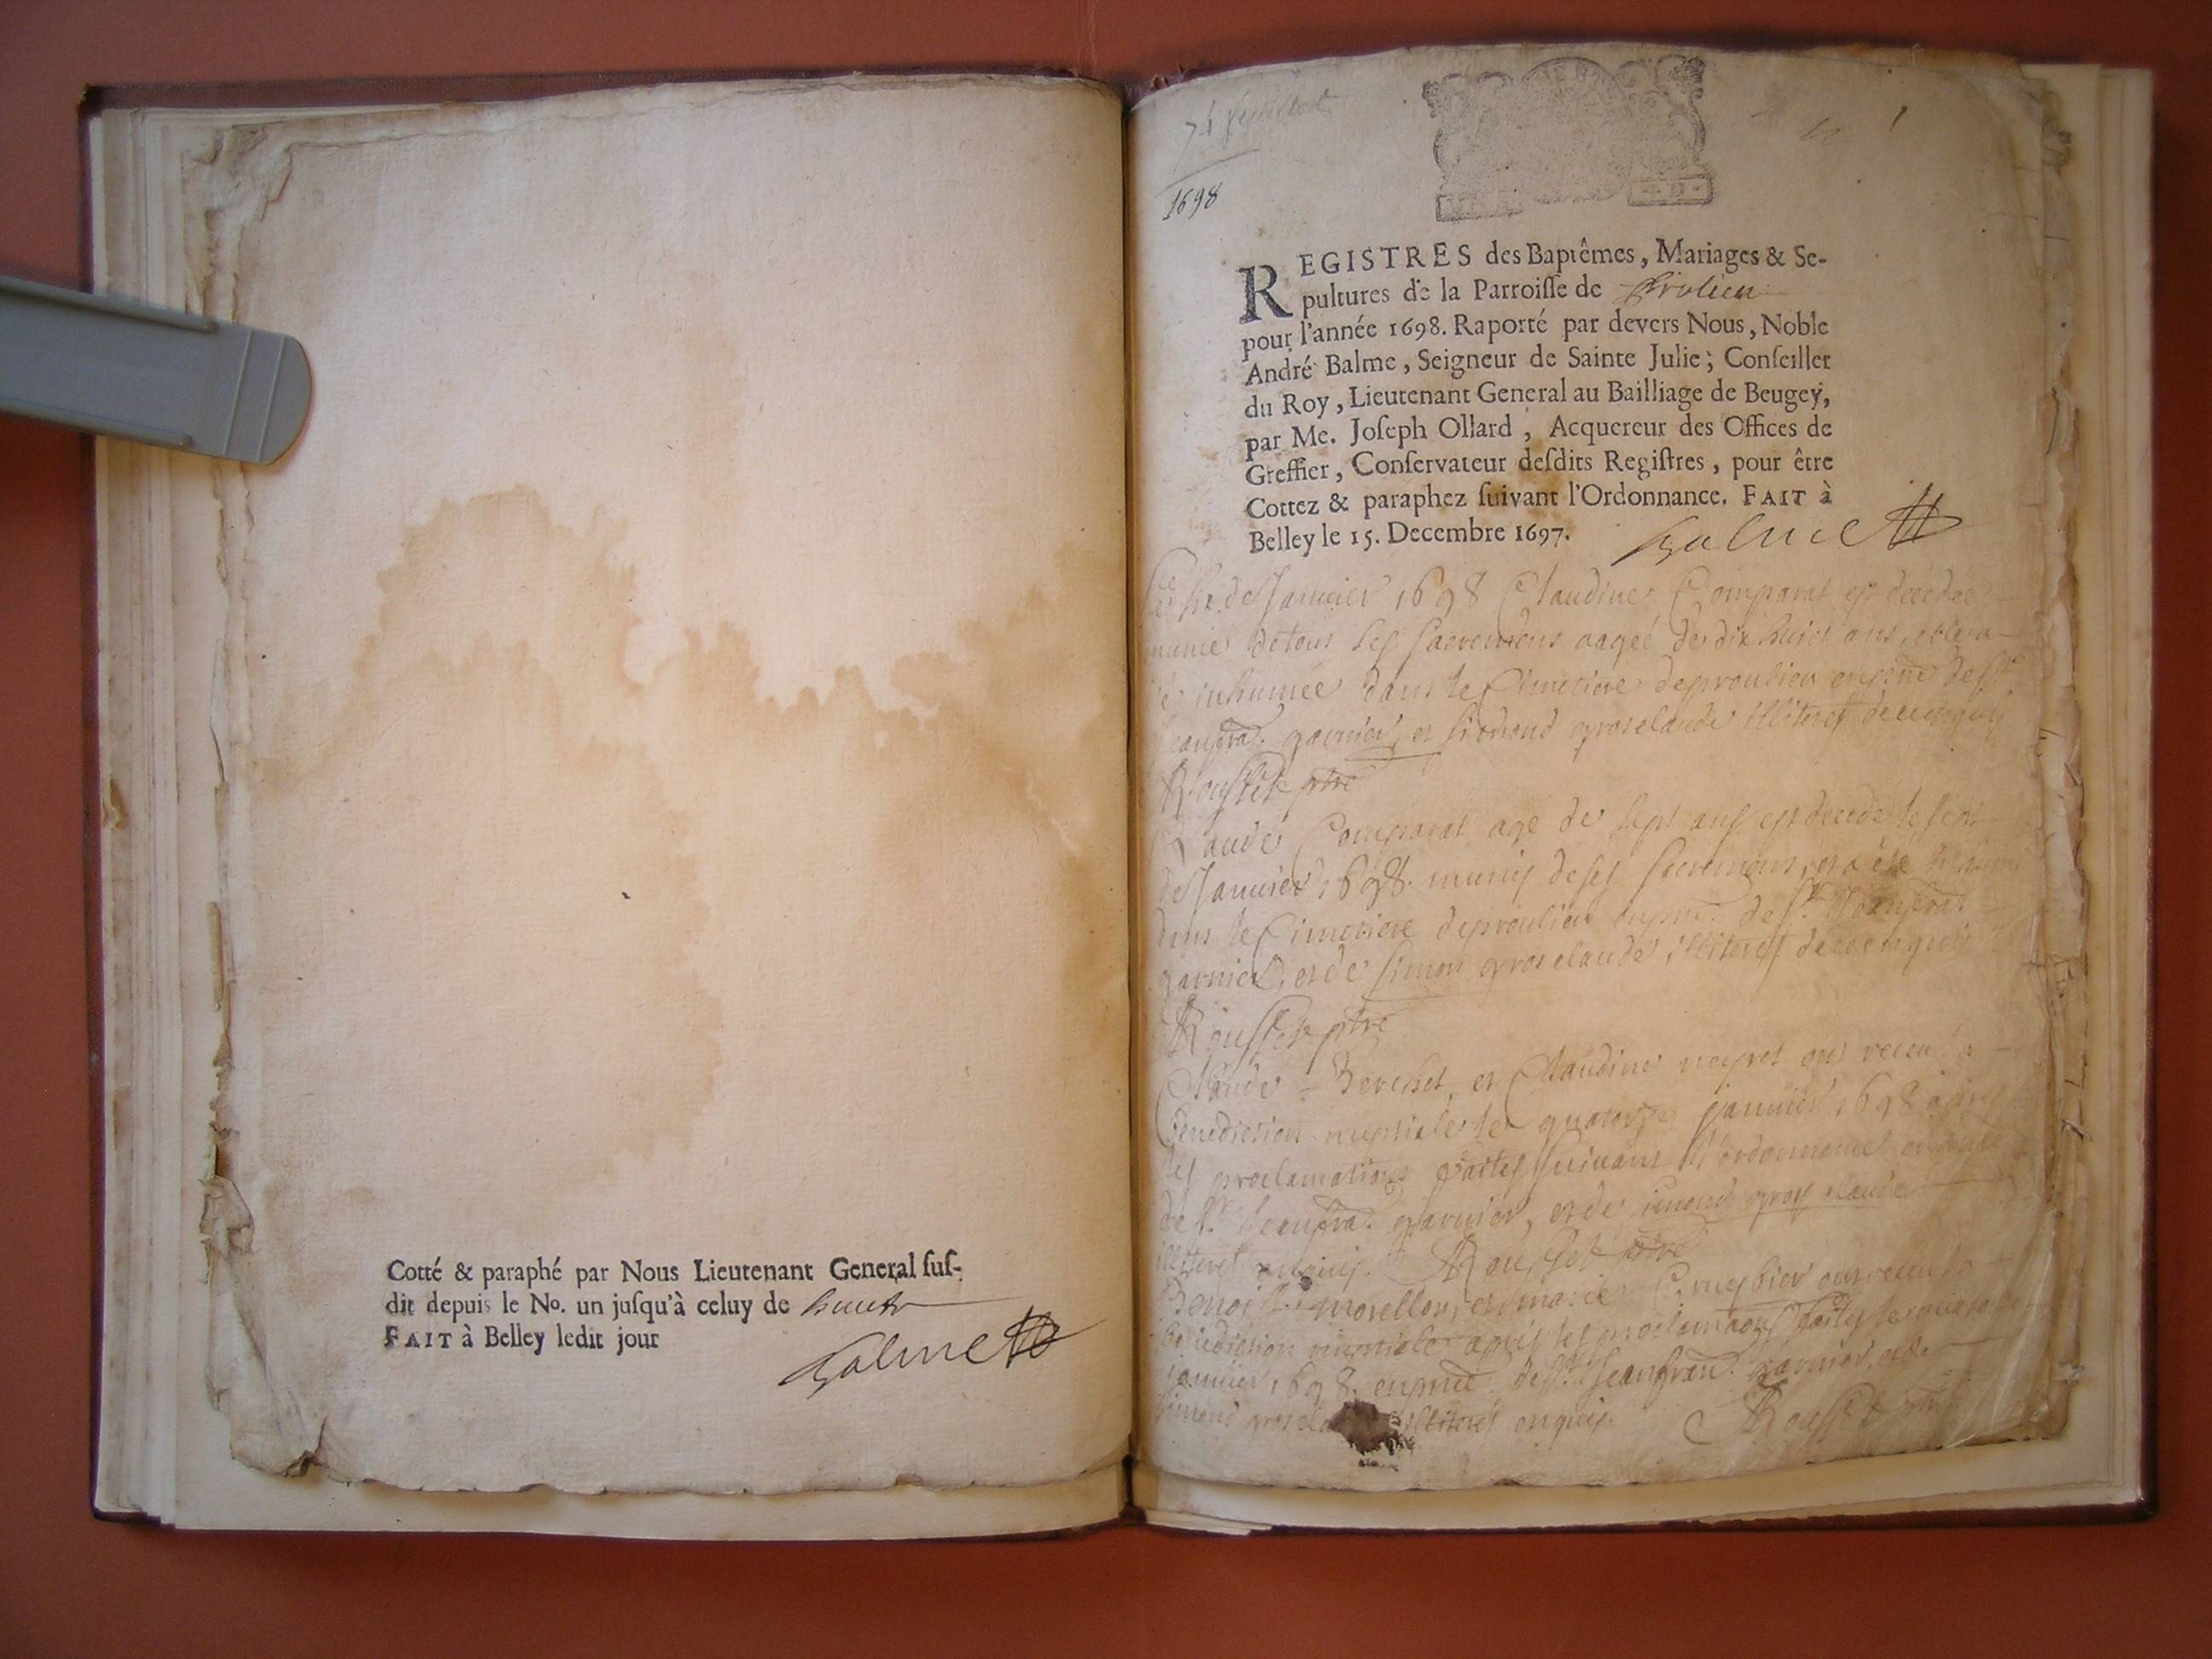 Cotté & paraphé par Nous Lieutenant General suſ-
dit depuis le No. un juſqu'à celuy de huict
FAIT à Belley ledit jour
Balme
74 feuillets
1698
REGISTRES des Baptêmes, Mariages & Se-
pultures de la Parroiſſe de Prolieu
pour l'année 1698. Raporté par devers Nous, Noble
André Balme, Seigneur de Sainte Julie; Conſeiller
du Roy, Lieutenant General au Bailliage de Beugey,
par Me. Joſeph Ollard, Acquereur des Offices de
Greffier, Conſervateur deſdits Regiſtres, pour être
Cottez & paraphez ſuivant l'Ordonnance. FAIT à
Belley le 15. Decembre 1697.
Balme
de Januier 1698 Claudine Comparat est décédée
munie de tous ses sacremens aagée de dix huict ans, et a
inhumée dans le Cimetiere de proulieu
garnier, et simond groselaude illiteres de ce enquis
Rousset ptre
Claude Comparat agé de sept ans est decedé le sept
de Januier 1698. munis de ses sacremens, et a été
dans le Cimetiere de proulieu
garnier, et de simon groselaude, illiteres de ce enquis
Rousset ptre
Claude Berchet, et Claudine neyret ont receu la
benediction nuptiale le quatorze januier 1698 apres
les proclamations faites suiuant l'ordonnance
garnier, et de simond gros claude
illiteres enquis. Rousset ptre
Benoist morellon, et marie ont receu la
benediction nuptiale apres les proclamaons faites le quatorze
januier 1698. garnier, et de
simond illiteres enquis. Rousset ptre